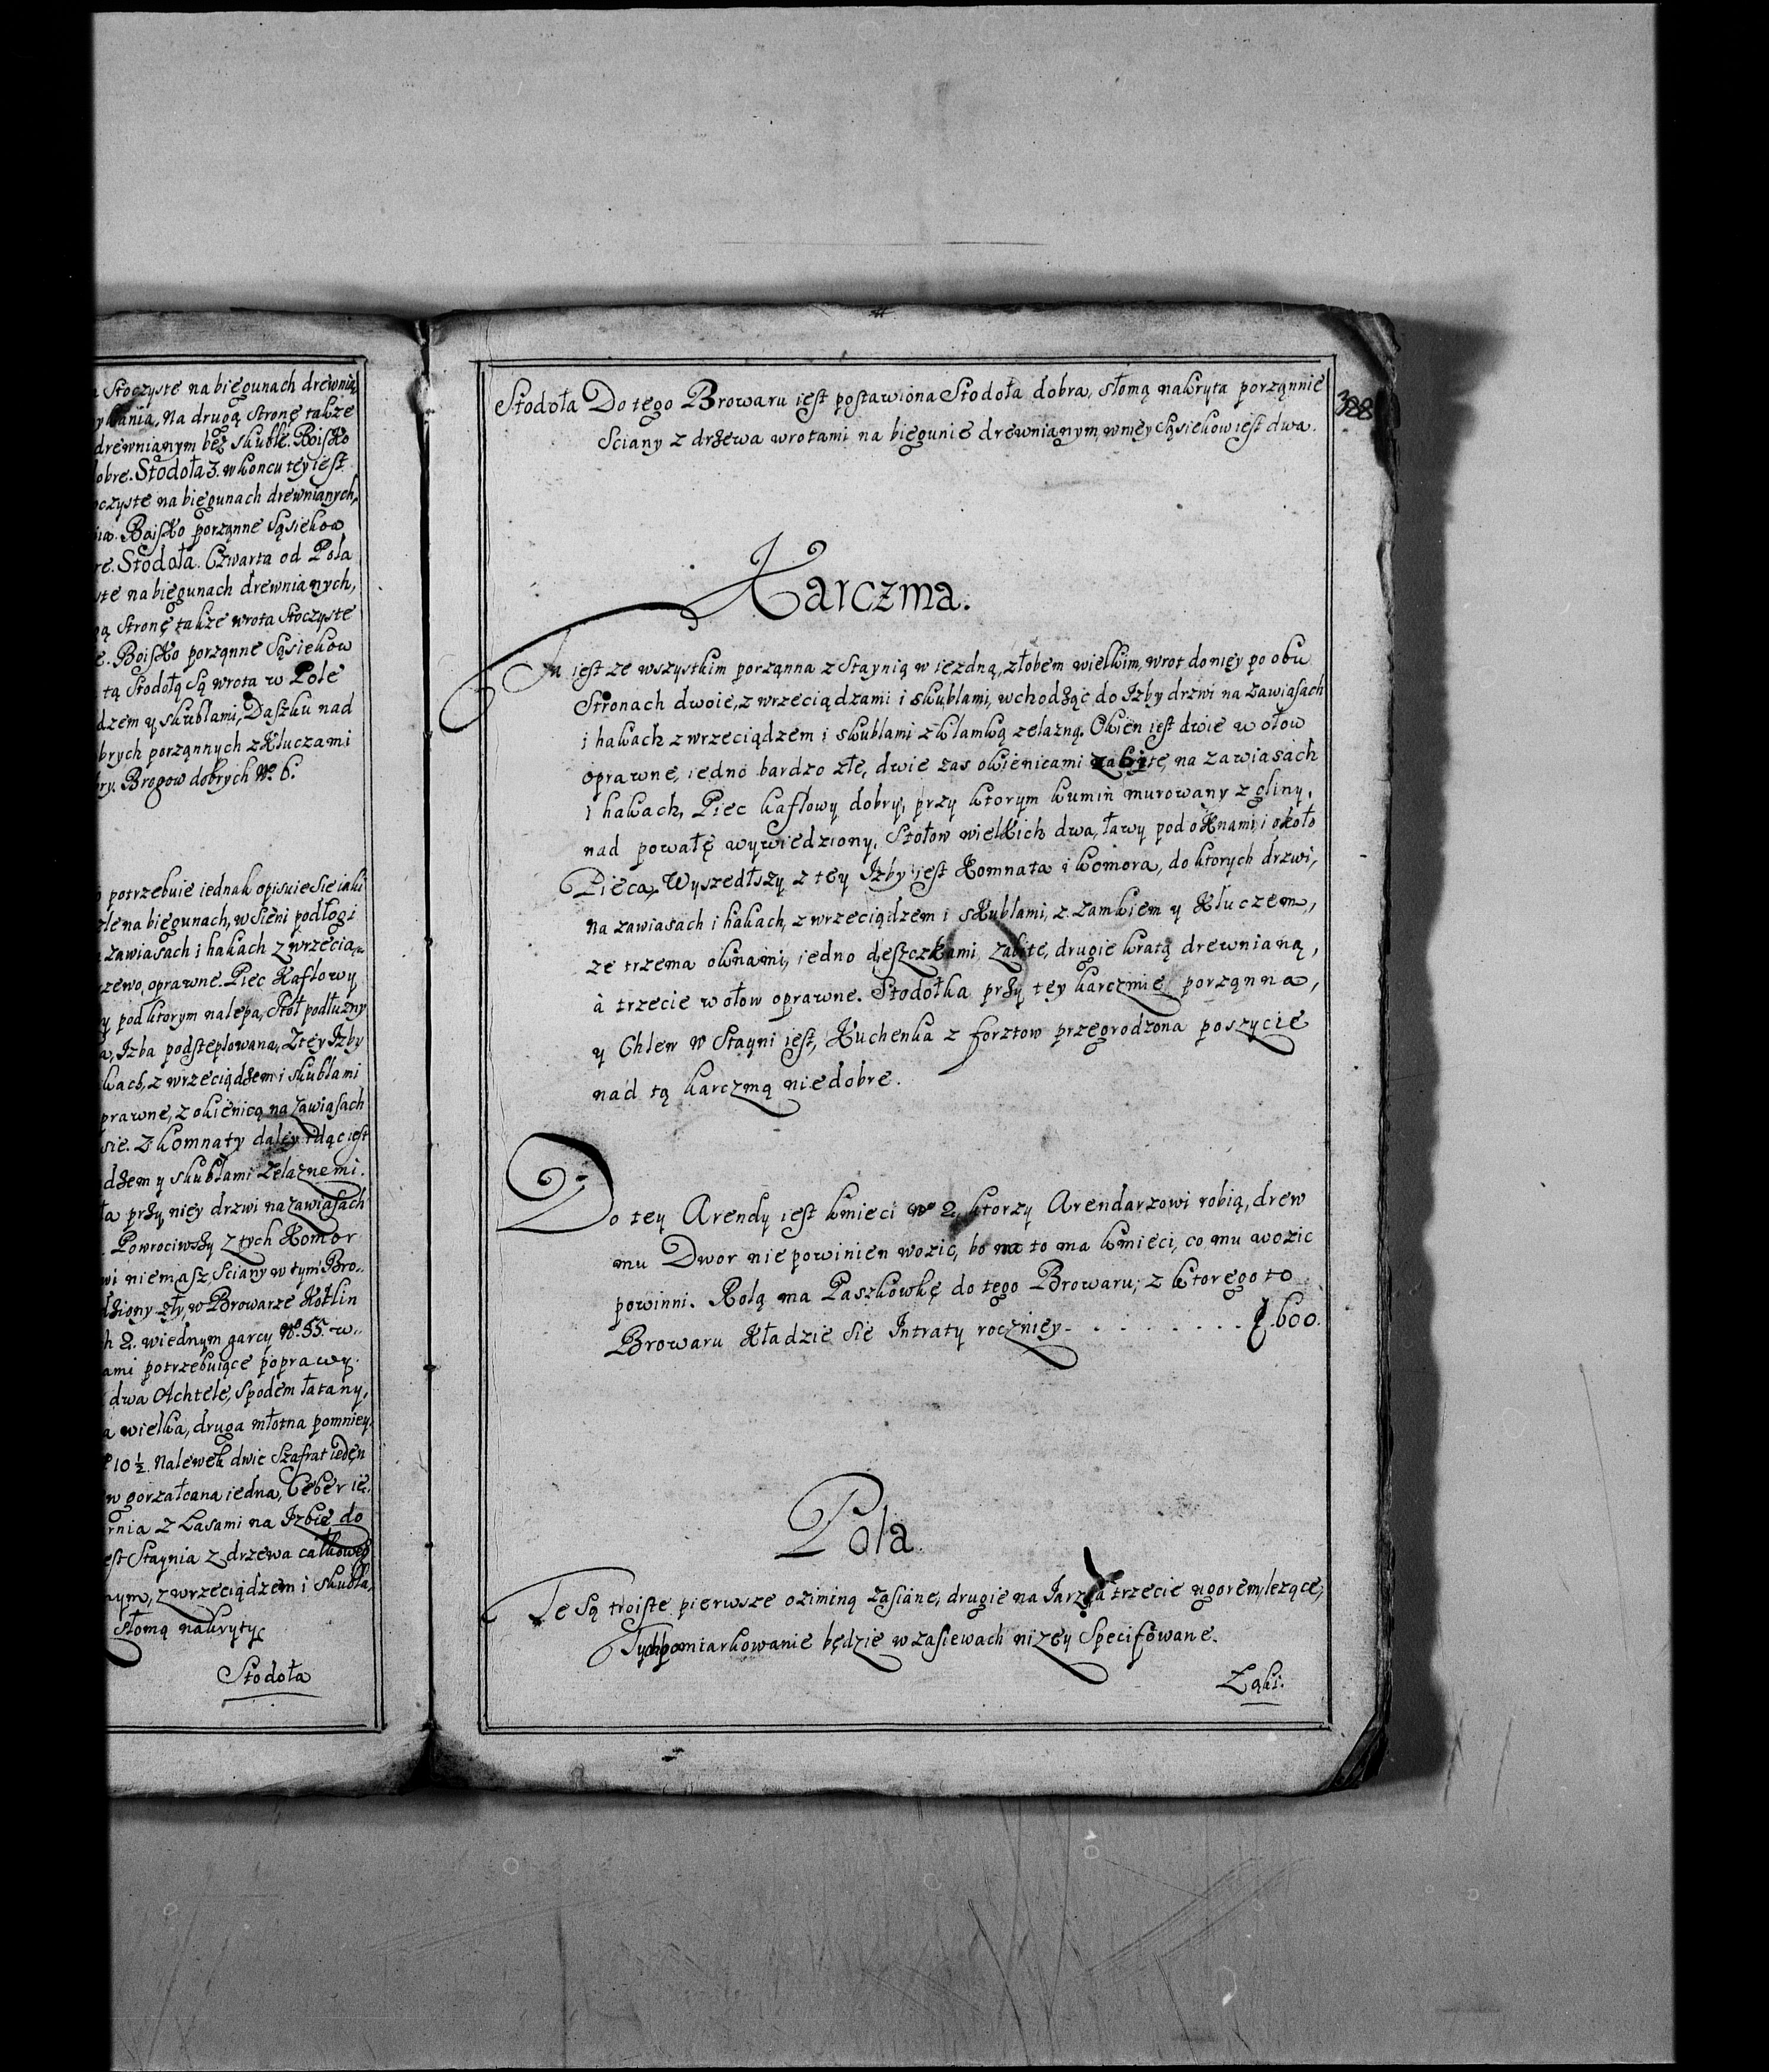 Stoczyste na biegunach drewnią
ykania, Na drugą stronę także
drewnianym bez skuble. Boisko
obre. Stodoła 3. w koncu tey iest
oczyste na biegunach drewnianych,
Boisko porządne Sąsiekow
re. Stodoła. Czwarta od Pola
ste na biegunach drewnianych,
gą Stronę także wrota Stoczyste
e. Boisko porządne Sąsiekow
tą Stodołą Są wrota w Pole
dzem y skublami, Daszku nad
obrych porządnych z Kluczami
ry. Brogow dobrych No. 6.
potrzebuie iednak opisuie Sie iaki
złe na biegunach, w Sieni podłogi
zawiasach i hakach z wrzecią
rzewo, oprawne. Piec Kaflowy
y pod ktorym nalepa, Stoł podłużny
a, Izba podsteplowana, Z tey Izby
kach, z wrzeciądzem i skublami
prawne, z okienicą na zawiasach
sie. Z komnaty daley idąc iest
dzem y skublami żelaznemi.
ła przy niey drzwi na zawiasach
Powrociwszy Z tych Komor
wi niemasz, Sciany w tym Bro„
dziony zły, w Browarze Kotlin
h 2. w iednym garcy No. 55. w„
ami potrzebuiące poprawy.
dwa Achtele, Spodem łatany,
a wielka, druga młotna pomniey
10 ½. Nalewek dwie Szafrat ieden
w gorzałczana iedna, Ceber ie„
rnia z Lasami na Izbie do
est Staynia z drzewa całkoweg
nym, z wrzeciądzem i skubla„
Słomą nakryty
Stodoła
388
Stodoła Do tego Browaru iest postawiona Stodoła dobra, słomą nakryta porządnnie
Sciany z drzewa wrotami na biegunie drewnianym, w niey Sąsiekow iest dwa.
Karczma.
Ta iest ze wszystkim porządnna z Staynią w iezdną, złobem wielkim, wrot do niey po obu
Stronach dwoie, z wrzeciądzami i skublami, wchodząc do Izby drzwi na zawiasach
i hakach z wrzeciądzem i skublami z klamką zelazną. Okien iest dwie w ołow
oprawne, iedno bardzo złe, dwie zas okienicami zabite, na zawiasach
i hakach, Piec kaflowy dobry, przy ktorym kumin murowany z gliny,
nad powałę wywiedziony. Stołow wielkich dwa, ławy pod oknami i około
Pieca, Wyszedłszy z tey Izby iest Komnata i komora, do ktorych drzwi,
na zawiasach i hakach, z wrzeciądzem i skublami, z zamkiem y Kluczem,
ze trzema oknami, iedno deszczkami zabite, drugie kratą drewnianą,
à trzecie w ołow oprawne. Stodołka przy tey karczmie porządnna,
y Chlew w Stayni iest, Kuchenka z forztow przegrodzona poszycie
nad tą karczmą niedobre.
Do tey Arendy iest kmieci No 2. ktorzy Arendarzowi robią, drew
mu Dwor nie powinien wozic, bo na to ma kmieci, co mu wozic
powinni. Rolą ma Paszkowkę do tego Browaru; z ktorego to
Browaru Kładzie Sie Intraty roczniey . . . . . . . . f. 600.
Pola.
Te Są troiste pierwsze oziminą zasiane, drugie na Jarzyna trzecie ugorem, lezące,
Tych pomiarkowanie będzie w zasiewach nizey Specifowane.
Ląki.